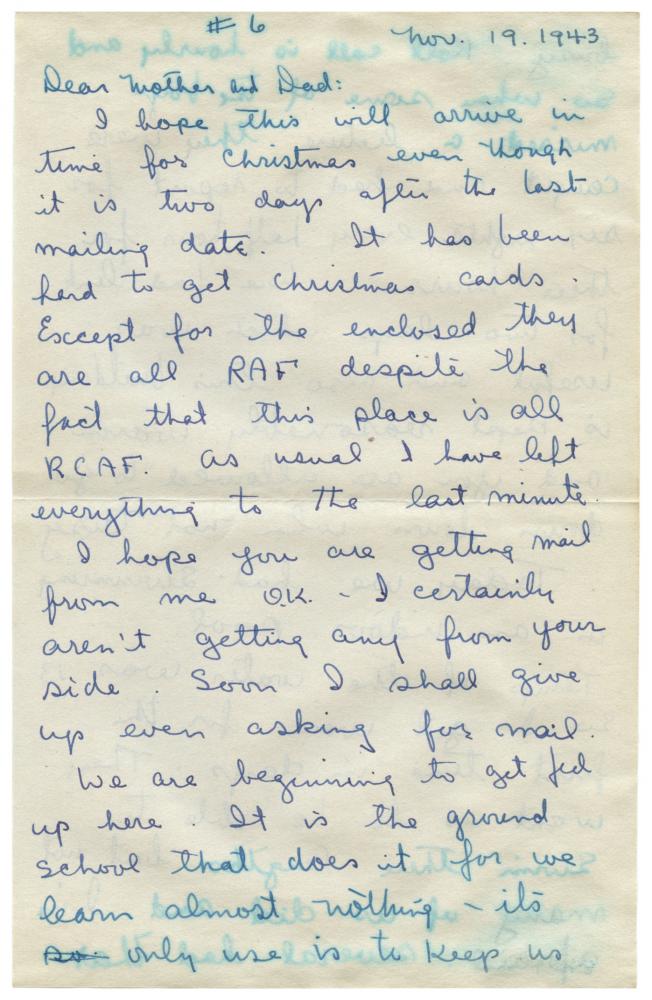 # 6
Nov. 19. 1943
Dear Mother and Dad:
I hope this will arrive in
time for Christmas even though
it is two days after the last
mailing date. It has been
hard to get Christmas cards.
Except for the enclosed they
are all RAF despite the
fact that this place is all
RCAF. As usual I have left
everything to the last minute.
I hope you are getting mail
from me O.K. - I certainly
aren't getting any from your
side. Soon I shall give
up even asking for mail.
We are beginning to get fed
up here. It is the ground
school that does it for we
learn almost nothing - its
only use is to keep us